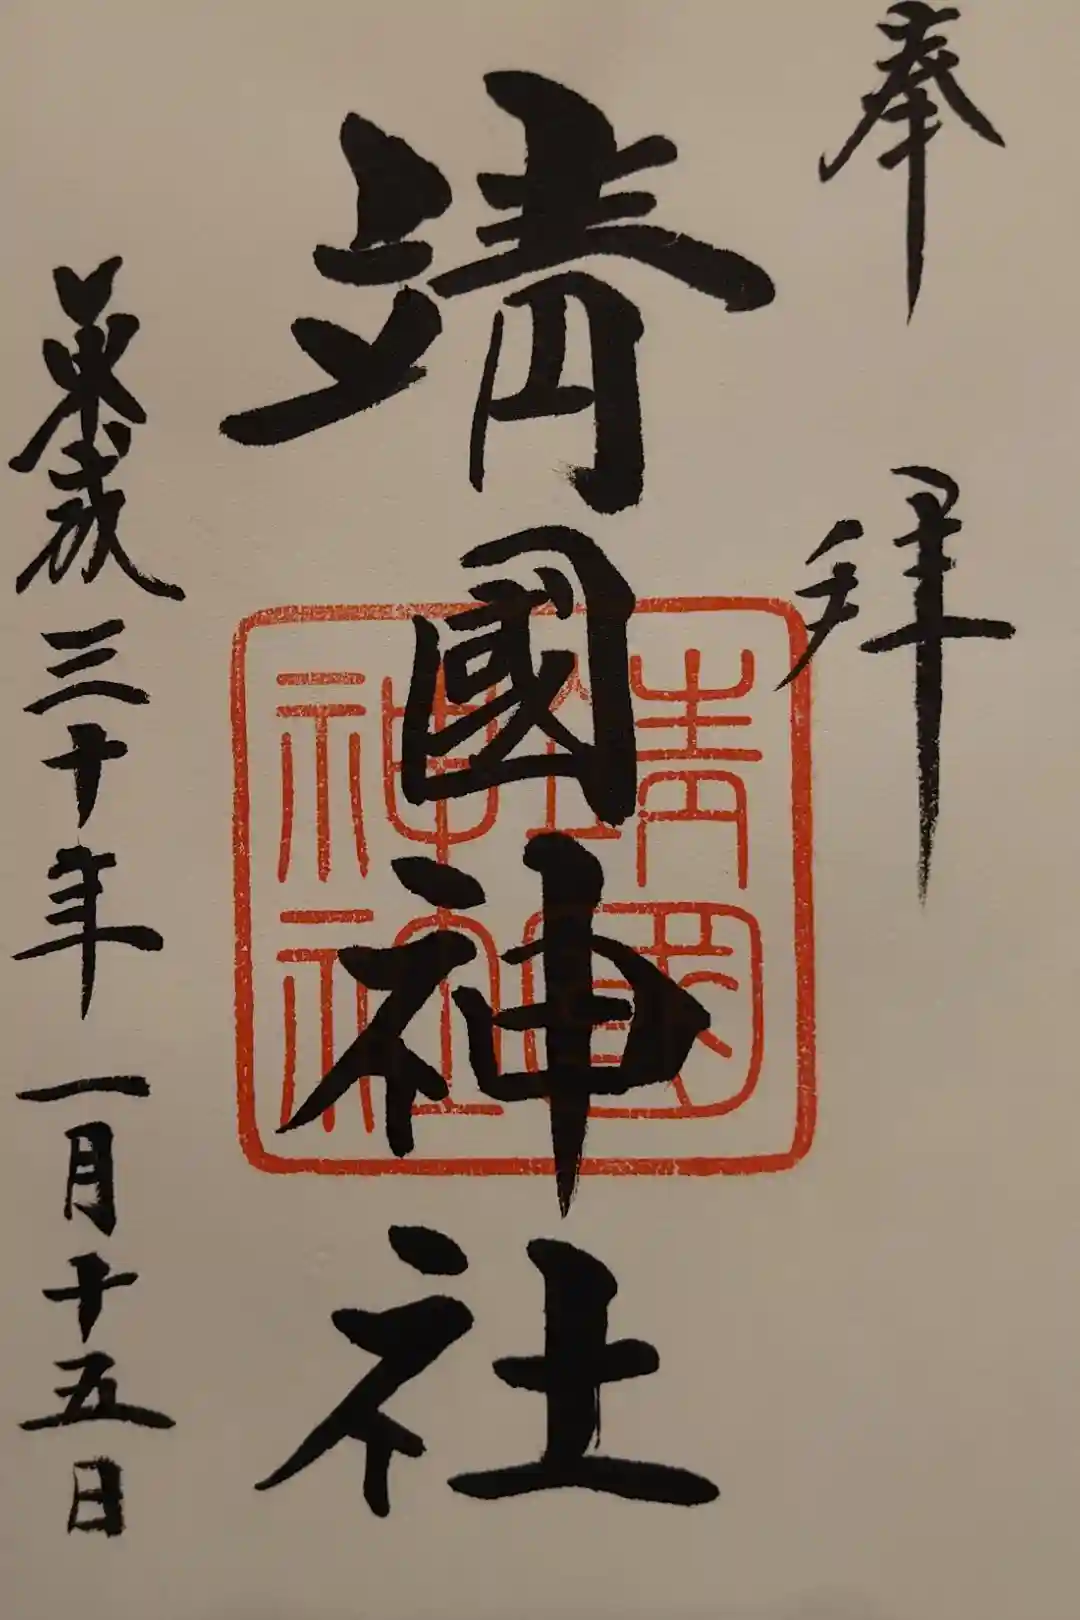 奉拝
靖國神社
平成三十年一月十五日
靖國
神社